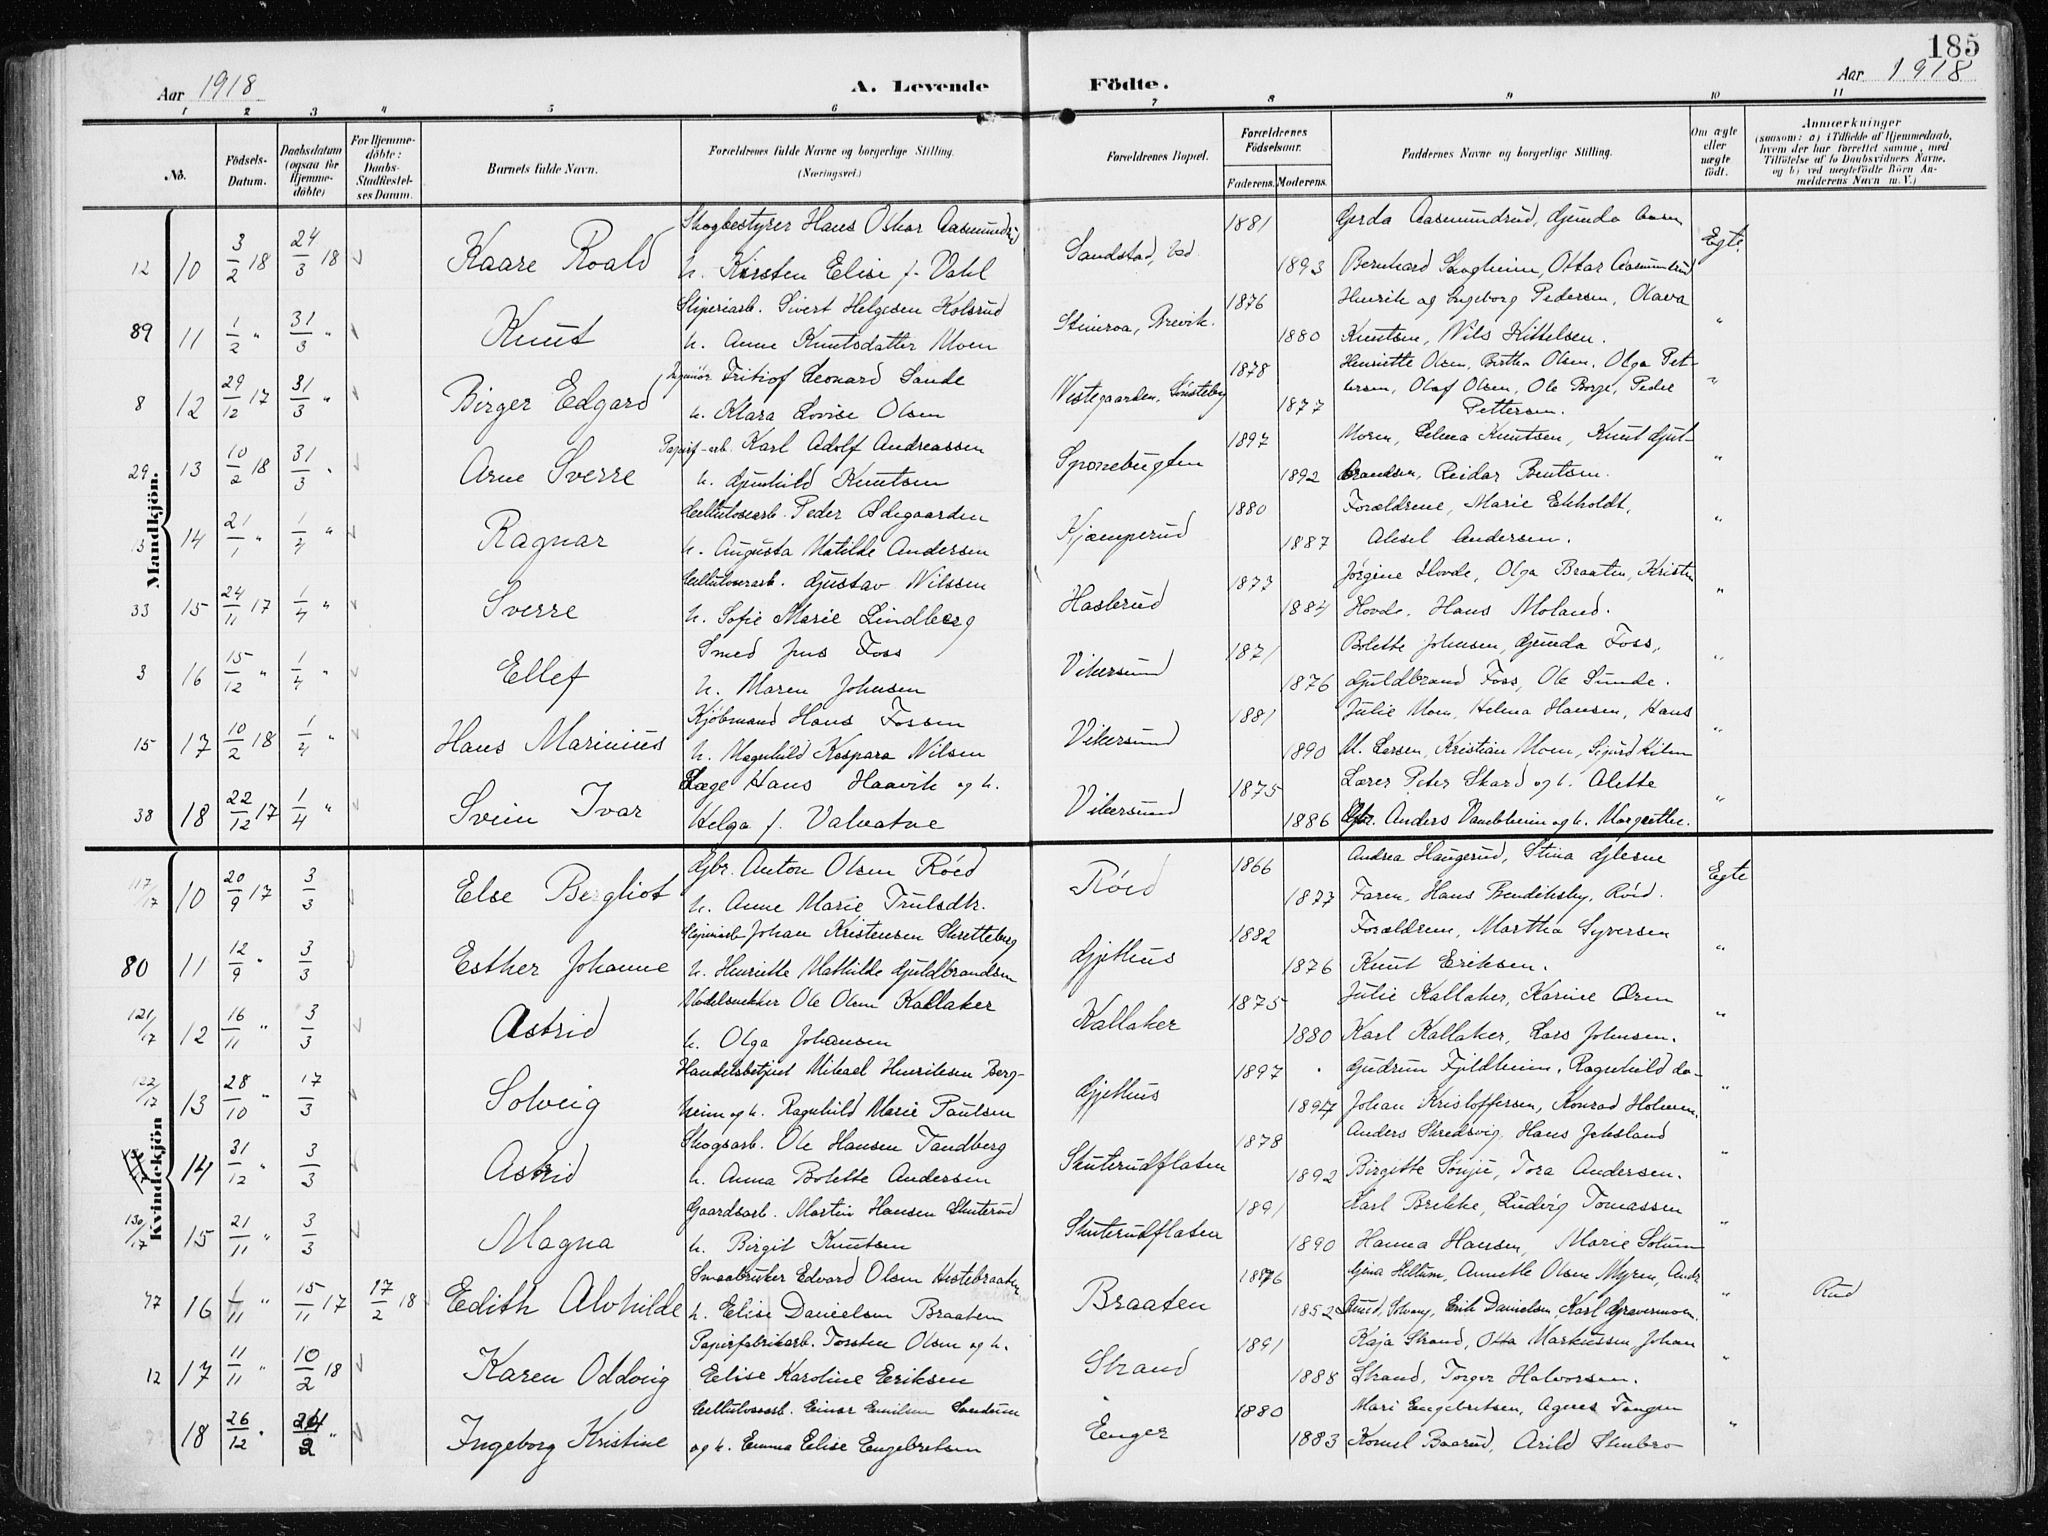 185
Aar 1918
A. Levende
Födte.
Aar 1918
1 2 3 4 5 6 7 8 9 10 11
No.
Födsels-Datum.
Daabsdatum (ogsaa for Hjemmedöbte)
For Hjemmedöbte: Daabs-Stadfæstelses Datum.
Barnets fulde Navn.
Forældrenes fulde Navne og borgerlige Stilling. (Næringsvei.)
Forældrenes Bopæl.
Forældrenes Födselsaar.
Faderens. Moderens.
Faddernes Navne og borgerlige Stilling.
Om ægte eller uægte födt.
Anmærkninger
(saasom: a) i Tilfælde af Hjemmedaab, hvem der har forrettet samme, med Tilföielse af to Daabsvidners Navne, og b) ved uegtefödte Börn Anmelderens Navn m. V.)
Mandkjön.
12 10 3/2 18 24/3 18 Kaare Roald
Skogbestyrer Hans Oskar Aasmundrud
h. Kirsten Elise f. Vahl
Sandstad, 1881 1893
Gerda Aasmundrud, Gunda Aasen
Bernhard Skogheim, Ottar Aasmundrud
Egte
89 11 1/2 " 31/3 " Knut
Sliperiarb. Sivert Helgesen Kolsrud
h. Anne Knutsdatter Moen
Stenroa, Brevik. 1876 1880
Henrik og Ingeborg Pedersen, Olava
Knutsen, Nils Kittelsen. "
8 12 29/12 17 31/3 " Birger Edgard
Ingeniör Fritiof Leonard Sande
h. Klara Lovise Olsen
Vestegaarden, 1878 1877
Henriette Olsen, Birtha Olsen, Olga Pet-
tersen, Olaf Olsen, Ole Borge, Peder
Pettersen. "
29 13 10/2 18 31/3 " Arne Sverre
Papirf-arb. Karl Adolf Andreassen
h. Gunhild Knutsen
Sponebugten 1897 1892
Moren, Selma Knutsen, Knut Gul-
brandsen, Reidar Bentsen. "
14 21/1 " 1/4 " Ragnar
Cellulosearb. Peder Ödegaarden
h. Augusta Matilde Andersen
Kjæmperud 1880 1887
Forældrene, Marie Ekholdt,
Aksel Andersen. "
33 15 24/11 17 1/4 " Sverre
Cellulosearb. Gustav Nilssen
h. Sofie Marie Lindberg
Haslerud 1873 1884
Jörgine Hovde, Olga Braaten, Kristen
Hovde, Hans Moland. "
3 16 15/12 " 1/4 " Ellef
Smed Jens Foss
h. Maren Johnsen
Vikersund 1871 1876
Bolette Johnsen, Gunda Foss,
Guldbrand Foss, Ole Sunde. "
15 17 10/2 18 1/4 " Hans Marinius
Kjöbmand Hans Fossen
h. Magnhild Kaspara Nilsen
Vikersund 1881 1890
Julie Moen, Helena Hansen, Hans
M. Larsen, Kristian Moen, Sigurd "
38 18 22/12 17 1/4 " Svein Ivar
Læge Hans Haavik og h.
Helga f. Valvatne
Vikersund 1875 1886
Lærer Peter Skard og h. Alette
Gbr. Anders og h. Margrethe. "
Kvindekjön
117/17 10 20/9 17 3/3 Else Bergliot
Gbr. Anton Olsen Röed
h. Anne Marie Trulsdtr.
Röed 1866 1877
Andrea Haugerud, Stina Glesne
Faren, Hans Bendiksby, Röed.
Egte
80 11 12/9 " 3/3 Esther Johanne
Sliperiarb Johan Kristensen Skretteberg
h. Henriette Mathilde Guldbrandsen
Gjethus 1882 1876
Forældrene, Martha Syversen
Knut Eriksen. "
121/17 12 16/11 " 3/3 Astrid
Modelsnekker Ole Olsen Kallaker
h. Olga Johansen
Kallaker 1875 1880
Julie Kallaker, Karine Ösen
Karl Kallaker, Lars Johnsen. "
122/17 13 28/10 " 17/3 Solveig
Handelsbetjent Mikael Henriksen Berg-
heim og h. Ragnhild Marie Paulsen
Gjethus 1897 1897
Gudrun Fjeldheim, Ragnhild do-
Johan Kristoffersen, Konrad Holmen. "
14 31/12 " 3/3 Astrid
Skogsarb. Ole Hansen Tandberg
h. Anna Bolette Andersen
Skuterudflaten 1878 1892
Anders Skredsvig, Hans Joksland
Birgitte Sönju, Tora Andersen. "
130/17 15 21/11 " 3/3 Magna
Gaardsarb. Martin Hansen Skuterud
h. Birgit Knutsen
Skuterudflaten 1891 1890
Karl Brekke, Ludvig Tomassen
Hanna Hansen, Marie Solum "
77 16 1/11 " 15/11 17 17/2 18 Edith Alvhilde
Smaabruker Edvard Olsen Hestebraaten
h. Elise Danielsen Braaten
Braaten 1876 1852
Gina Heltum, Annette Olsen Myren, Andr.
Erik Danielsen, Karl Gravermoen "
Rud
12 17 11/11 " 10/2 18 Karen Oddveig
Papirfabrikarb. Torsten Olsen og h.
Elise Karoline Eriksen
Strand 1891 1888
Kaja Strand, Otto Markussen, Johan
Strand, Torger Halvorsen. "
18 26/12 " 24/2 " Ingeborg Kristine
Cellulosearb. Einar Emilsen Sandum
og h. Emma Elise Engebretsen
Enger 1880 1883
Mari Engebretsen, Agnes Tangen
Baarud, Arild Stubro "